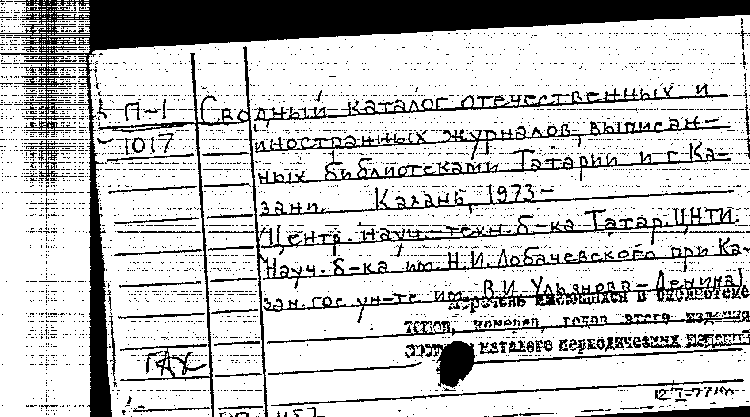 П-1 Сводный каталог отечественных и
1017 иностранных журналов, выписан-
ных библиотеками Татарии и г. Ка-
зани. Казань, 1973-
Центр. науч.-техн. б-ка Татар. ЦНТИ.
Науч. б-ка им. Н.И. Лобачевского при Ка-
зан. гос. ун-те им. В.И. Ульянова-Ленина
Перечень имеющихся в библиотеке
томов, номеров, годов этого издания
каталоге периодических изданий